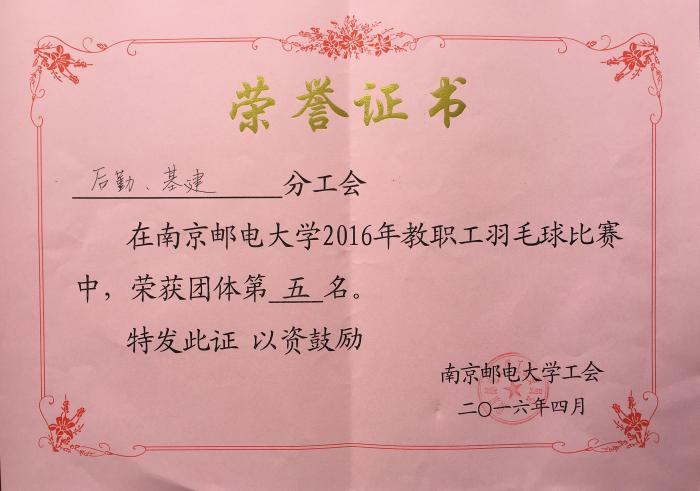 荣誉证书
后勤、基建 分工会
在南京邮电大学2016年教职工羽毛球比赛
中，荣获团体第 五 名。
特发此证 以资鼓励
南京邮电大学工会
二〇一六年四月